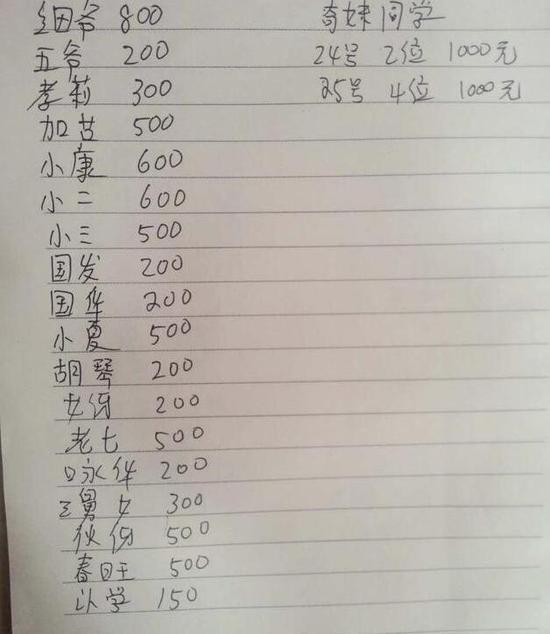 细爷 800
五爷 200
孝莉 300
加古 500
小康 600
小二 600
小三 500
国发 200
国华 200
小夏 500
胡琴 200
女份 200
老七 500
咏华 200
三舅女 300
伙份 500
春旺 500
以学 150
奇妹同学
24号 2位 1000元
25号 4位 1000元